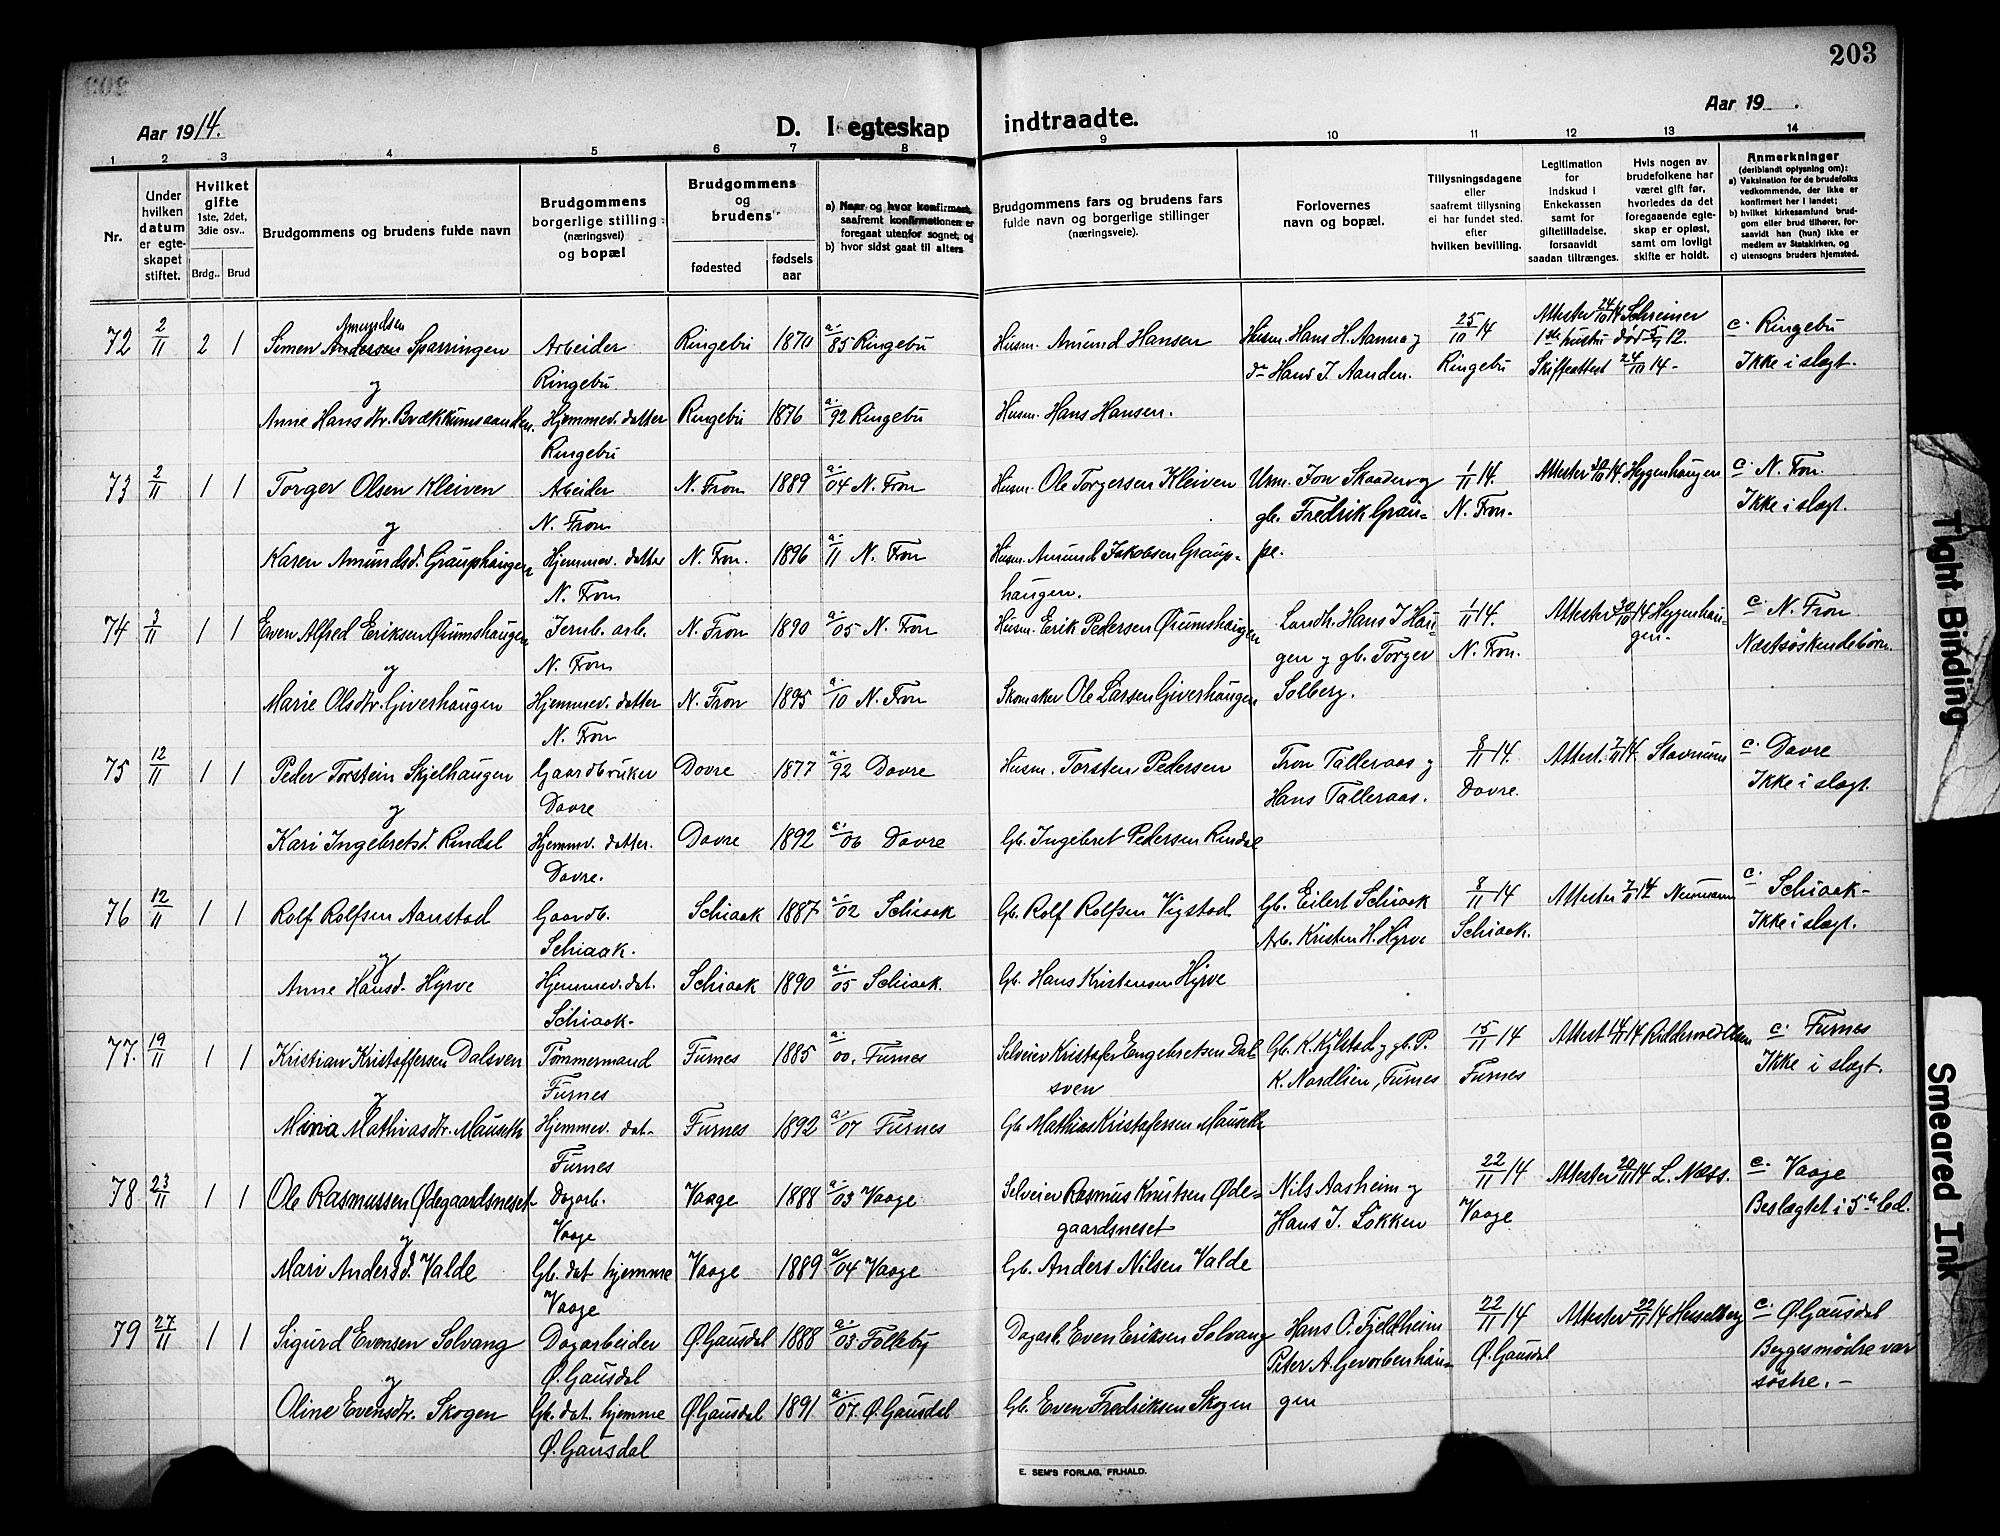 203
Aar 1914.
D. I egteskap indtraadte.
Aar 19 .
1 2 3 4 5 6 7 8 9 10 11 12 13 14
Nr.
Under hvilken datum er egteskapet stiftet.
Hvilket gifte 1ste, 2det, 3die osv..
Brdg.. Brud
Brudgommens og brudens fulde navn
Brudgommens borgerlige stilling (næringsvei) og bopæl
Brudgommens og brudens
fødested
fødsels aar
a) Naar og hvor konfirmert, saafremt konfirmationen er foregaat utenfor sognet, og
b) hvor sidst gaat til alters
Brudgommens fars og brudens fars fulde navn og borgerlige stillinger (næringsveie).
Forlovernes navn og bopæl.
Tillysningsdagene eller saafremt tillysning ei har fundet sted. efter hvilken bevilling.
Legitimation for indskud i Enkekassen samt for giftetilladelse, forsaavidt saadan tiltrænges.
Hvis nogen av brudefolkene har været gift før, hvorledes da det foregaaende egteskap er opløst, samt om lovligt skifte er holdt.
Anmerkninger (deriblandt oplysning om):
a) Vaksination for de brudefolks vedkommende, der ikke er konfirmert her i landet;
b) hvilket kirkesamfund brudgom eller brud tilhører, forsaavidt han (hun) ikke er medlem av Statskirken, og
c) utensogns bruders hjemsted.
72 2/11 2 1 Simen Andersen Amundsen Sparringen Arbeider Ringebu 1870 a. 85 Ringebu Husm. Amund Hansen Husm. Hans H. Aanma og 25/10 14 Attester 24/10 14 Schreiner c. Ringebu
og Ringebu. da Hans J. Aanden. Ringebu 1ste hustru død 5/5 12. Ikke i slegt.
Skifteattest 24/10 14 -
Anne Hansdtr. Brækkumsaanden. Hjemmev. datter Ringebu 1876 a. 92 Ringebu Husm. Hans Hansen.
Ringebu
73 2/11 1 1 Torger Olsen Kleiven Arbeider N. Fron 1889 a. 04 N. Fron Husm. Ole Torgersen Kleiven Urm. Jon Skaaden og 1/11 14. Attester 30/10 14. Heggenhaugen c. N. Fron.
og N. Fron gb. Fredrik Grau- N. Fron. Ikke i slegt.
Karen Amundsd. Grauphaugen Hjemmev. datter N. Fron. 1896 a. 11 N. Fron Husm. Amund Jakobsen Graup- pe.
N. Fron haugen.
74 3/11 1 1 Even Alfred Eriksen Øiumshaugen Jernb. arb. N. Fron 1890 a. 05 N. Fron Husm. Erik Pedersen Øiumshaugen Landh. Hans J Hau- 1/11 14. Attester 30/10 14 Heggenhau- c. N. Fron
og N. Fron gen og gb. Torger N. Fron. gen. Næstsøskendebørn.
Marie Olsdtr. Giverhaugen Hjemmev. datter N. Fron 1895 a. 10 N. Fron Skomaker Ole Larsen Giverhaugen Solberg.
N. Fron
75 12/11 1 1 Peder Torstein Skjelhaugen Gaardbruker Dovre 1877 a. 92 Dovre Husm. Torsten Pedersen Tron Talleraas og 8/11 14. Attest. 7/11 14. Stavnum c. Dovre
og Dovre Hans Talleraas. Dovre. Ikke i slegt.
Kari Ingebretsd. Rindal Hjemmv. datter. Dovre 1892 a. 06 Dovre Gb. Ingebret Pedersen Rindal
Dovre.
76 12/11 1 1 Rolf Rolfsen Aanstad Gaardb. Schiaak 1887 a. 02 Schiaak Gb. Rolf Rolfsen Vigstad Gb. Eilert Schiaak 8/11 14 Attester 7/11 14 Neumann c. Schiaak-
og Schiaak. Arb. Kristen H. Hyrve Schiaak. Ikke i slegt.
Anne Hansd. Hyrve Hjemmev. dat. Schiaak 1890 a. 05 Schiaak. Gb. Hans Kristensen Hyrve
Schiaak.
77. 19/11 1 1 Kristian Kristoffersen Dalsven Tømmermand Furnes 1885 a. 00. Furnes Selveier Kristofer Engebretsen Dal Gb. K. Kjlstad og gb. P. 15/11 14 Attest 14/11 14 Riddervold c. Furnes
og Furnes sven K. Nordlien, Furnes Furnes Ikke i slegt.
Mathiasdtr. Mauseth Hjemmev. dat. Furnes 1892 a. 07 Furnes Gb. Mathias Kristofersen Mauseth
Furnes
78 23/11 1 1 Ole Rasmussen Ødegaardsneset Dagarb. Vaage 1888 a. 03 Vaage Selveier Rasmus Knutsen Øde- Nils Aasheim og 22/11 14 Attester 20/11 14 L. Næss. c. Vaage
og Vaage gaardsneset Hans J. Løkken Vaage Beslegtet i 5te led.
Mari Andersd. Valde Gb. dat hjemme Vaage 1889 a. 04 Vaage Gb. Anders Nilsen Valde
Vaage
79 27/11 1 1 Sigurd Evensen Solvang Dagarbeider Ø. Gausdal 1888 a. 03 Follebu Dagarb. Even Eriksen Solvang Hans O. Fjeldheim 22/11 14 Attester 22/11 14 Hesselberg c. Ø. Gausdal
og Ø. Gausdal Peter A. Gevorbenhau- Ø. Gausdal Begges mødre var
søstre. -
Oline Evensdtr. Skogen Gb. dat. hjemme Ø. Gausdal 1891 a. 07. Ø. Gausdal Gb. Even Fredriksen Skogen gen
Ø. Gausdal
E. SEM'S FORLAG, FR.HALD.
Tight Binding
Smeared Ink